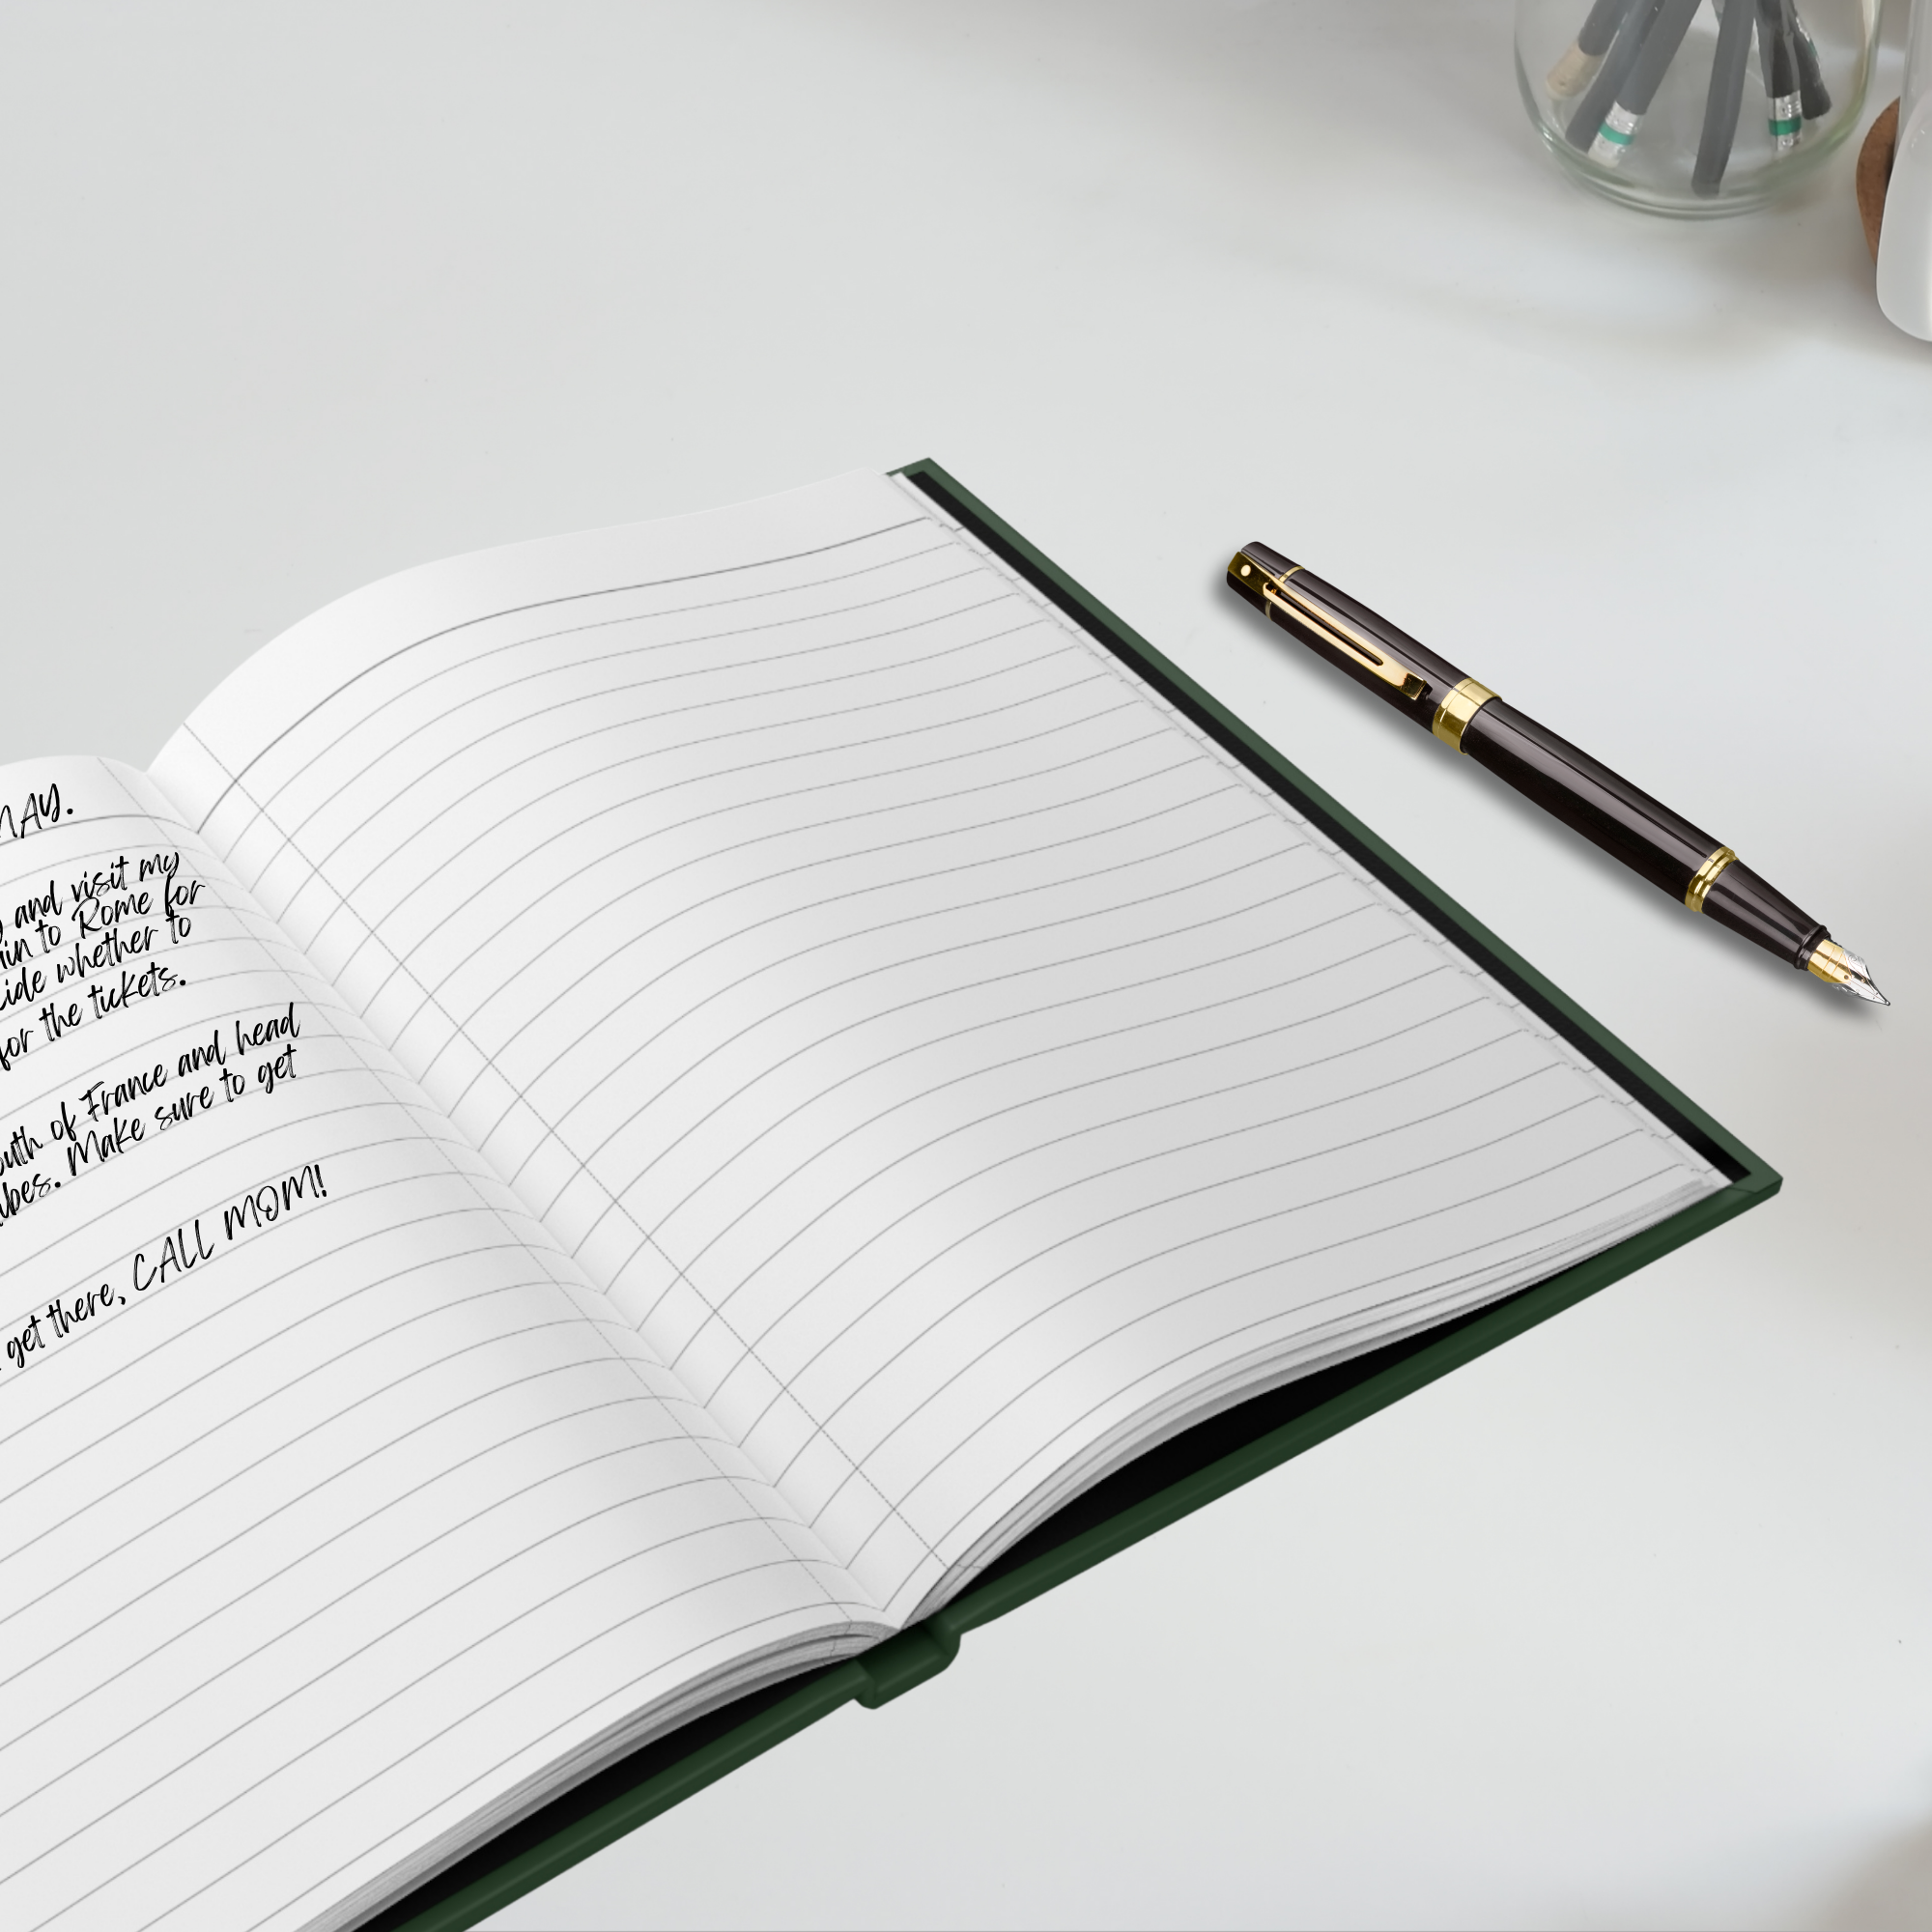 MAY.
and visit my
to Rome for
whether to
for the tickets.
of France and head
Make sure to get
get there, CALL MOM!